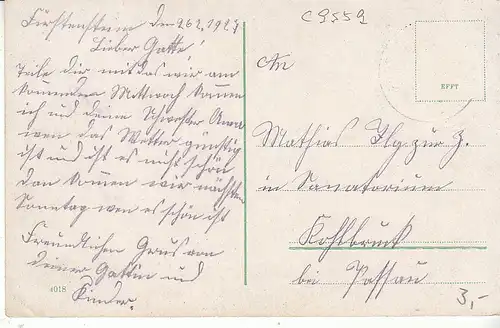 Fürstenstein den 26 2. 1927
Lieber Gatte!
Teile dir mit das wir am
kommenden Mittwoch kommen
ich und deine Schwester Anna
wen das Wetter günstig
ist und ist es nicht schön
dan kommen wir nächsten
Sonntag wen es schön ist
Freundlichen Grus von
deiner Gattin und
Kinder.
4018
C9559
An
EFFT
Mathias Ilg zur Z.
in Sanatorium
Kohlbruck
bei Passau
3,-